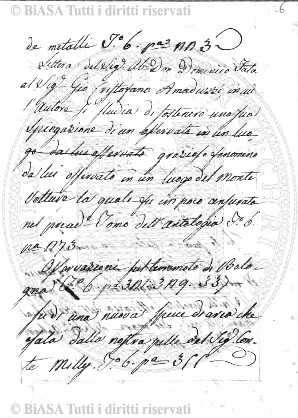 © BiASA Tutti i diritti riservati
26
de metalli To. 6. pa. 3
Lettera del Sig. Ab. Don Domenico Tata
al Sig. Gio. Cristofano Amaduzzi in cui
l'Autore si studia di sostenere una sua
spiegazione di un osservato in un luo-
go da lui osservato grazioso fenomeno
da lui osservato in un luogo del Monte
Volture la quale fu un poco censurata
nel preced. Tomo dell'antologia To. 6.
Osservazione di Bolo-
gna To. 6. p.
su di una nuova specie di aria che
esala dalla nostra pelle del Sig. Con-
te Milly. To. 6. pa. 355
© BiASA Tutti i diritti riservati